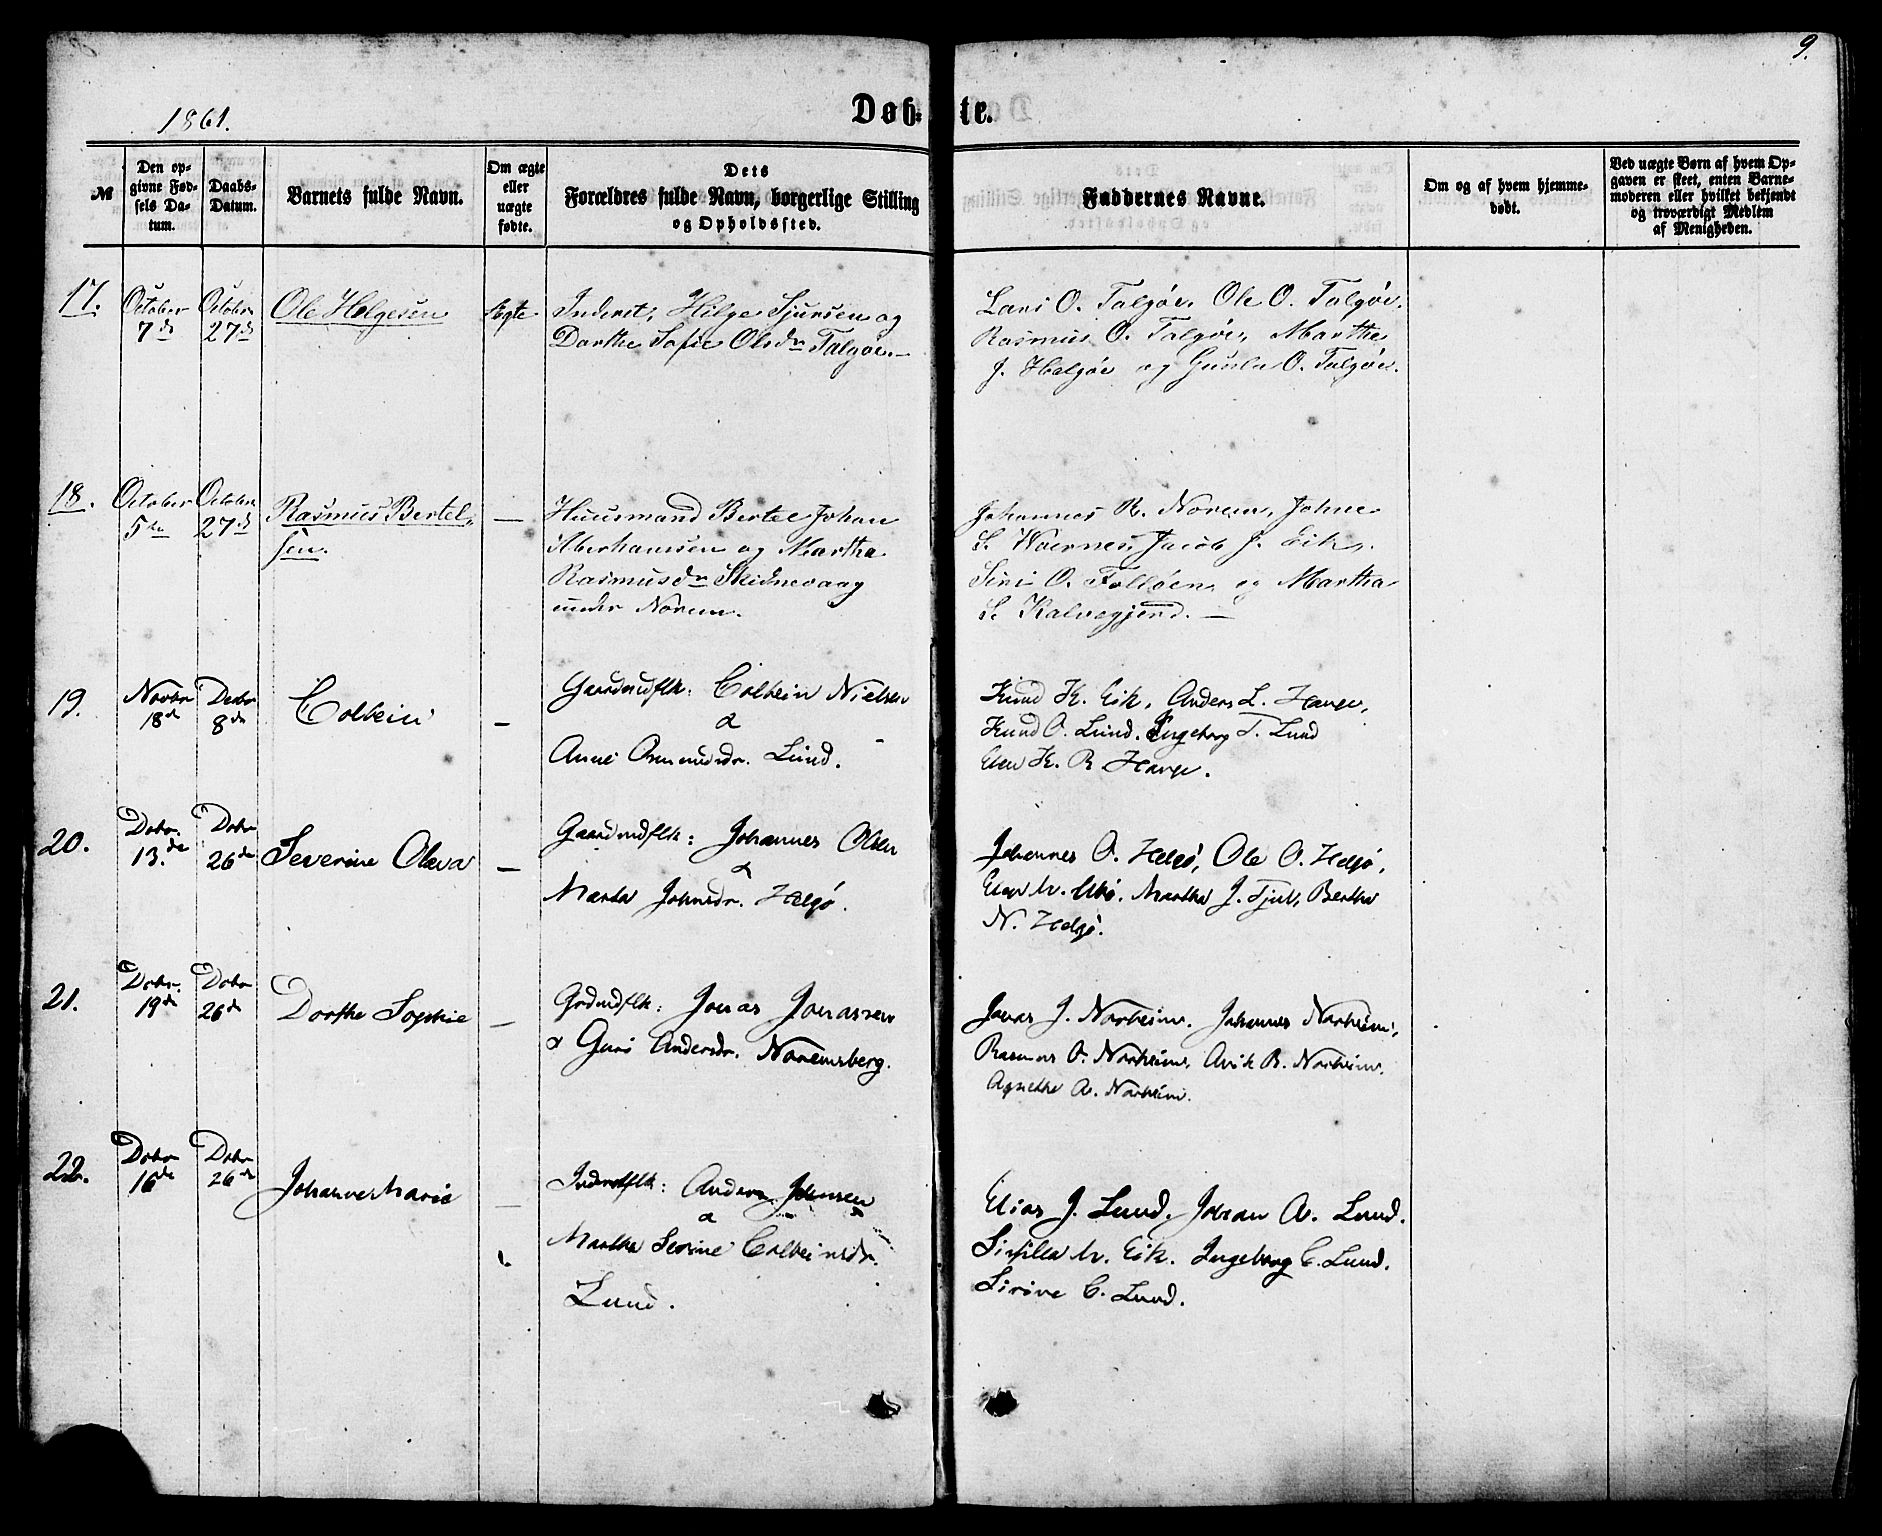 9.
1861.
Døb= te.
№
Den op-
givne Fød-
sels Da-
tum.
Daabs-
Datum.
Barnets fulde Navn.
Om ægte
eller
uægte
fødte.
Dets
Forældres fulde Navn, borgerlige Stilling
og Opholdssted.
Faddernes Navne.
Om og af hvem hjemme-
døbt.
Ved uægte Børn af hvem Op-
gaven er skeet, enten Barne-
moderen eller hvilket bekjendt
og troværdigt Medlem
af Menigheden.
17.
October
7d
October
27d
Ole Helgesen
Ægte
Inderst, Hilge Sjursen og
Dorthe Sofie Olsdr Talgøe.—
Lars O. Talgøe, Ole O. Talgøe,
Rasmus O. Talgøe, Marthe
J. Helgøe og Gunla O. Talgøe.
18.
October
5te
October
27d
Rasmus Bertel-
sen.
—
Huusmand Bertel Johan
Aberhamsen og Martha
Rasmusdr Skidnevaag
under Norem.
Johannes R. Norem, Johne
S. Waernes, Jacob J. Eik,
Siri O. Foldøen, og Martha
S. Kalvegjerd. —
19.
Novbr
18de
Decbr
8de
Colbein
—
Gaardmdflk: Colbein Nielsen
&
Anne Osmundsdr. Lund.
Knud K. Eik, Anders L. Hauge,
Knud O. Lund, Ingeborg T. Lund
Elen K. R Hauge.
20.
Dcbr.
13.de
Dcbr
26de
Severine Oleva
—
Gaardmdflk: Johannes Olsen
&
Marta Johnsdr. Helgø.
Johannes O. Helgø, Ole O. Helgø,
Martha J. Fjul, Bertha
N. Helgø.
21.
Dcbr.
19de
Dcbr
26de
Dorthe Sophie
—
Grdmdflk: Jonas Jonassen
& Guri Andersdr. Noremsberg.
Jonas J. Norheim. Johannes Norheim,
Rasmus O. Norheim, B. Norheim,
Agnethe A. Norheim.
22.
Dcbr
16de
Dcbr
26de
Johanne Marie
—
Inderstflk: Anders Jensen
&
Martha Serine Colbeinsdr.
Lund.
Elias J. Lund. Johan A. Lund.
Sisilla M. Eik. Ingeborg C. Lund.
Sirine C. Lund.